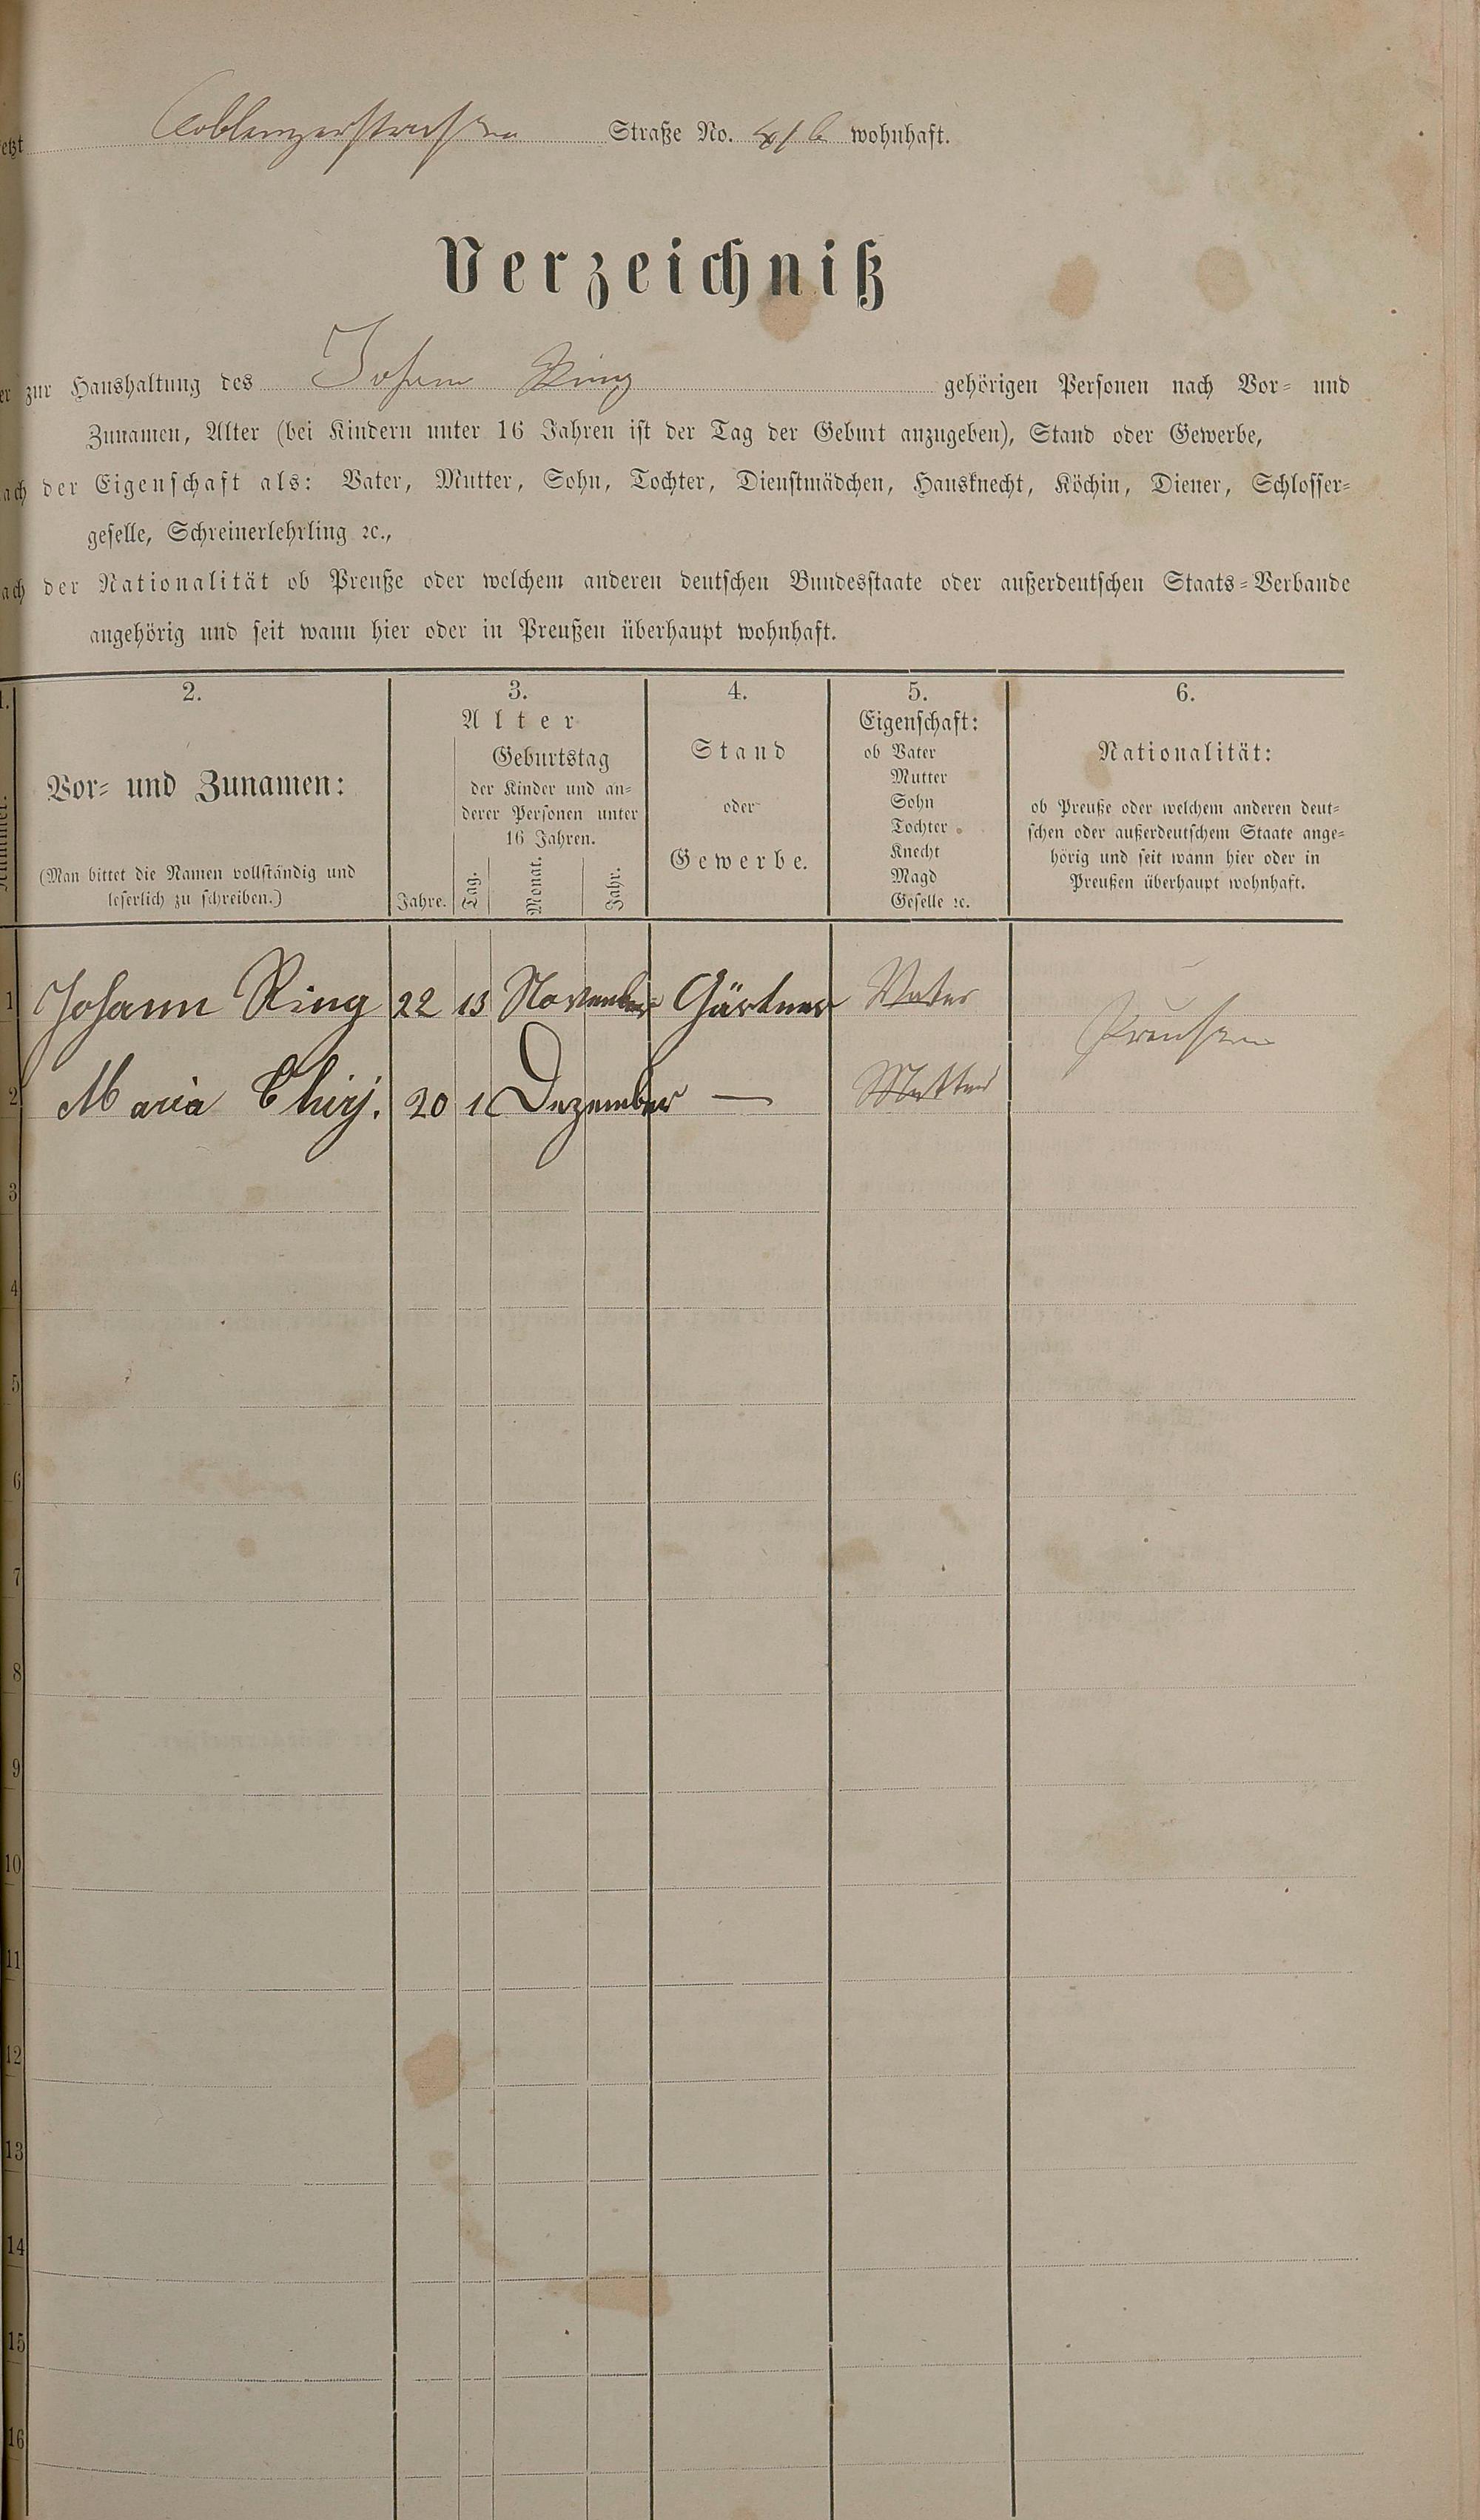 etzt Coblenzerstraßen Straße No. wohnhaft.
Verzeichniß
er zur Haushaltung des Johann Ring gehörigen Personen nach Vor- und
Zunamen, Alter (bei Kindern unter 16 Jahren ist der Tag der Geburt anzugeben), Stand oder Gewerbe,
ach der Eigenschaft als: Vater, Mutter, Sohn, Tochter, Dienstmädchen, Hausknecht, Köchin, Diener, Schlosser-
geselle, Schreinerlehrling ꝛc.,
ach der Nationalität ob Preuße oder welchem anderen deutschen Bundesstaate oder außerdeutschen Staats-Verbande
angehörig und seit wann hier oder in Preußen überhaupt wohnhaft.
1.
2.
Vor- und Zunamen:
(Man bittet die Namen vollständig und
leserlich zu schreiben.)
3.
Alter
Geburtstag
der Kinder und an-
derer Personen unter
16 Jahren.
Jahre. Tag. Monat. Jahr.
4.
Stand
oder
Gewerbe.
5.
Eigenschaft:
ob Vater
Mutter
Sohn
Tochter
Knecht
Magd
Geselle ꝛc.
6.
Nationalität:
ob Preuße oder welchem anderen deut-
schen oder außerdeutschem Staate ange-
hörig und seit wann hier oder in
Preußen überhaupt wohnhaft.
1 Johann Ring 22 13 November Gärtner Vater Preußen
2 Maria 20 1 Dezember — Mutter
3
4
5
6
7
8
9
10
11
12
13
14
15
16